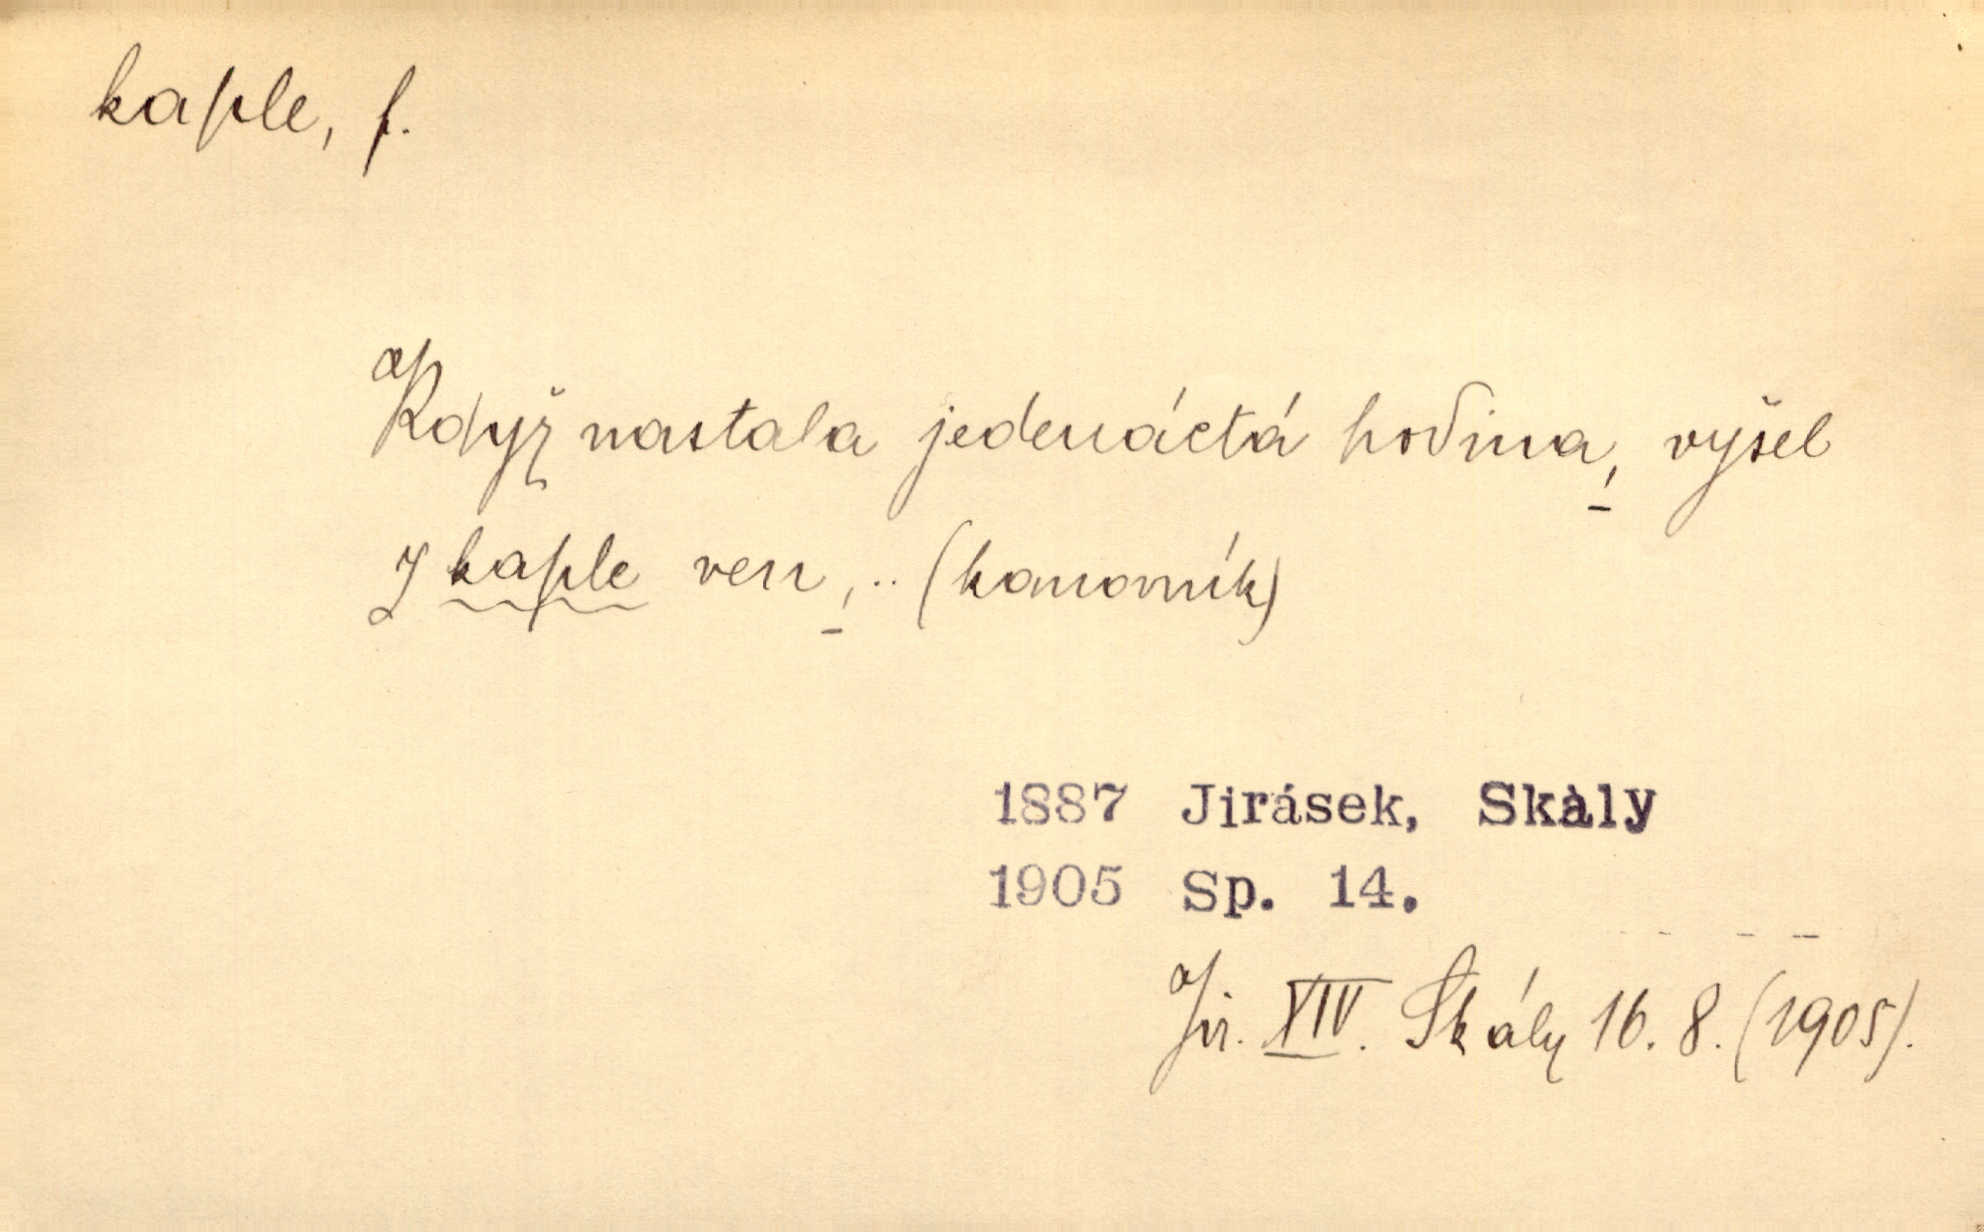 kaple, f.
Když nastala jedenáctá hodina, vyšel
z kaple ven,.. (kanovník)
1887 Jirásek, Skály
1905 Sp. 14.
Jir. XIV. Skály 16. 8. (1905).